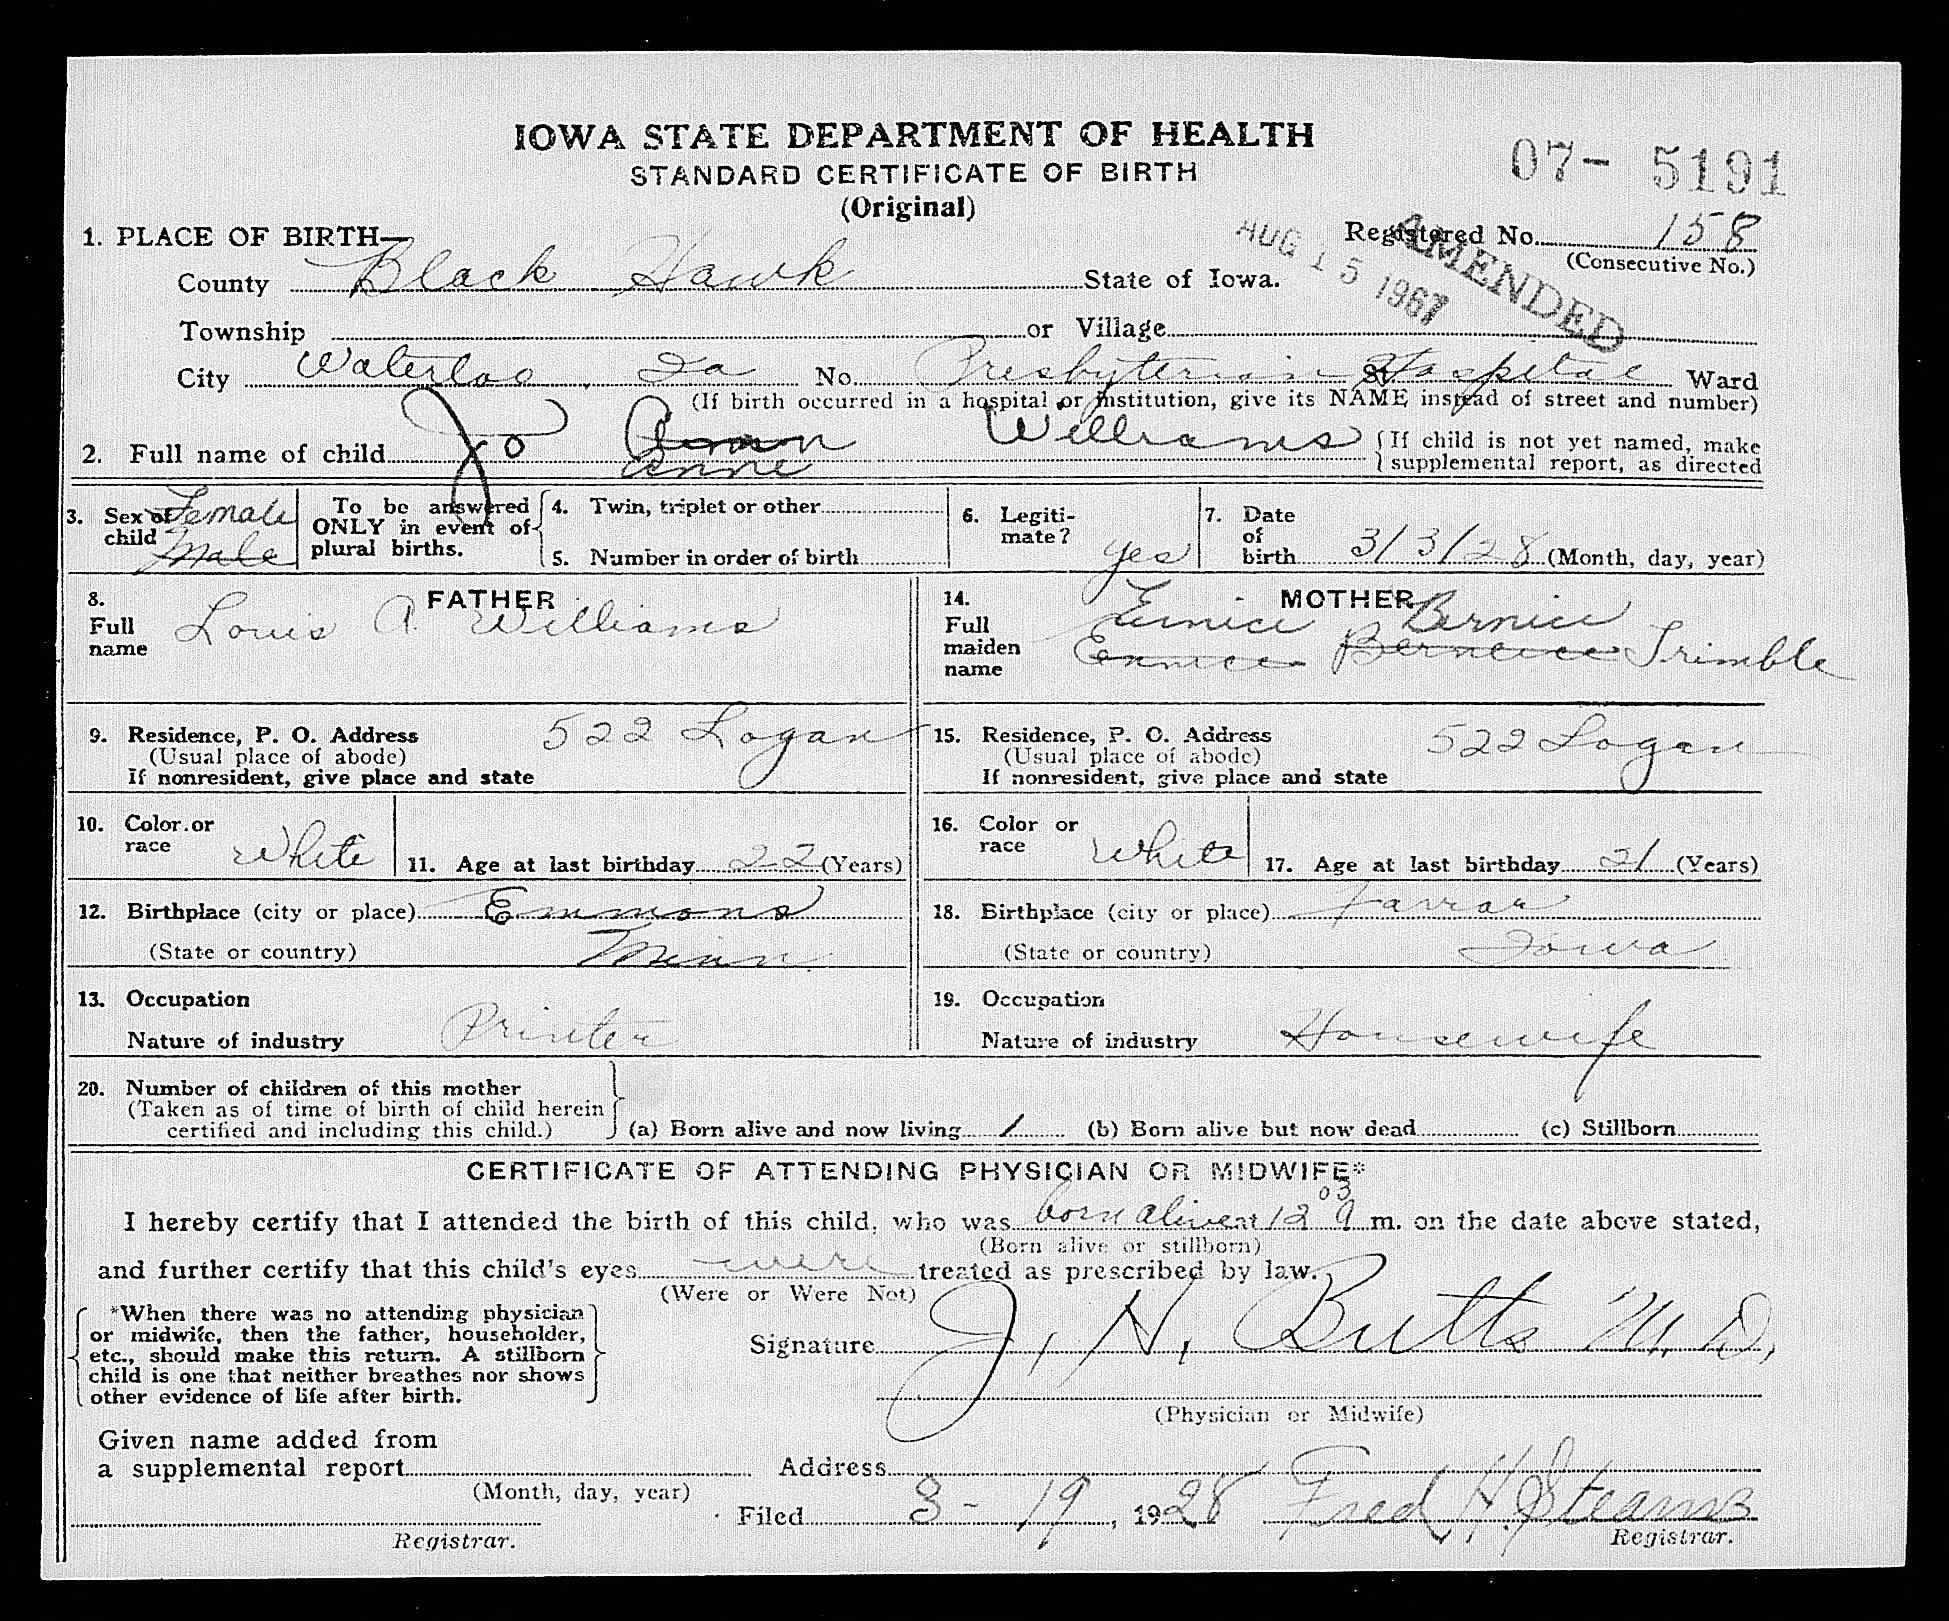 IOWA STATE DEPARTMENT OF HEALTH
STANDARD CERTIFICATE OF BIRTH
(Original)
07- 5191
1. PLACE OF BIRTH—
Registered No. 158
(Consecutive No.)
AUG 15 1967
AMENDED
County Black Hawk State of Iowa.
Township or Village
City Waterloo, Ia No. Presbyterian Hospital St. Ward
(If birth occurred in a hospital or institution, give its NAME instead of street and number)
2. Full name of child Jo Ann Williams {If child is not yet named, make
Anne supplemental report, as directed
3. Sex of child Female Male
To be answered ONLY in event of plural births.
4. Twin, triplet or other
5. Number in order of birth
6. Legitimate? yes
7. Date of birth 3/3/28 (Month, day, year)
FATHER
8. Full name Louis A. Williams
MOTHER
14. Full maiden name Eunice Bernice
Trimble
9. Residence, P. O. Address 522 Logan
(Usual place of abode)
If nonresident, give place and state
15. Residence, P. O. Address 522 Logan
(Usual place of abode)
If nonresident, give place and state
10. Color or race White
11. Age at last birthday 22 (Years)
16. Color or race White
17. Age at last birthday 21 (Years)
12. Birthplace (city or place) Emmons
(State or country) Minn
18. Birthplace (city or place) Farrar
(State or country) Iowa
13. Occupation
Nature of industry Printer
19. Occupation
Nature of industry Housewife
20. Number of children of this mother
(Taken as of time of birth of child herein
certified and including this child.)
(a) Born alive and now living 1 (b) Born alive but now dead (c) Stillborn
CERTIFICATE OF ATTENDING PHYSICIAN OR MIDWIFE*
I hereby certify that I attended the birth of this child, who was born alive at 12 03 a m. on the date above stated,
(Born alive or stillborn)
and further certify that this child's eyes were treated as prescribed by law.
(Were or Were Not)
*When there was no attending physician
or midwife, then the father, householder,
etc., should make this return. A stillborn
child is one that neither breathes nor shows
other evidence of life after birth.
Signature J. H. Butts M. D.,
(Physician or Midwife)
Given name added from
a supplemental report
(Month, day, year)
Address
Registrar.
Filed 3-19, 1928 Fred H. Stearns
Registrar.